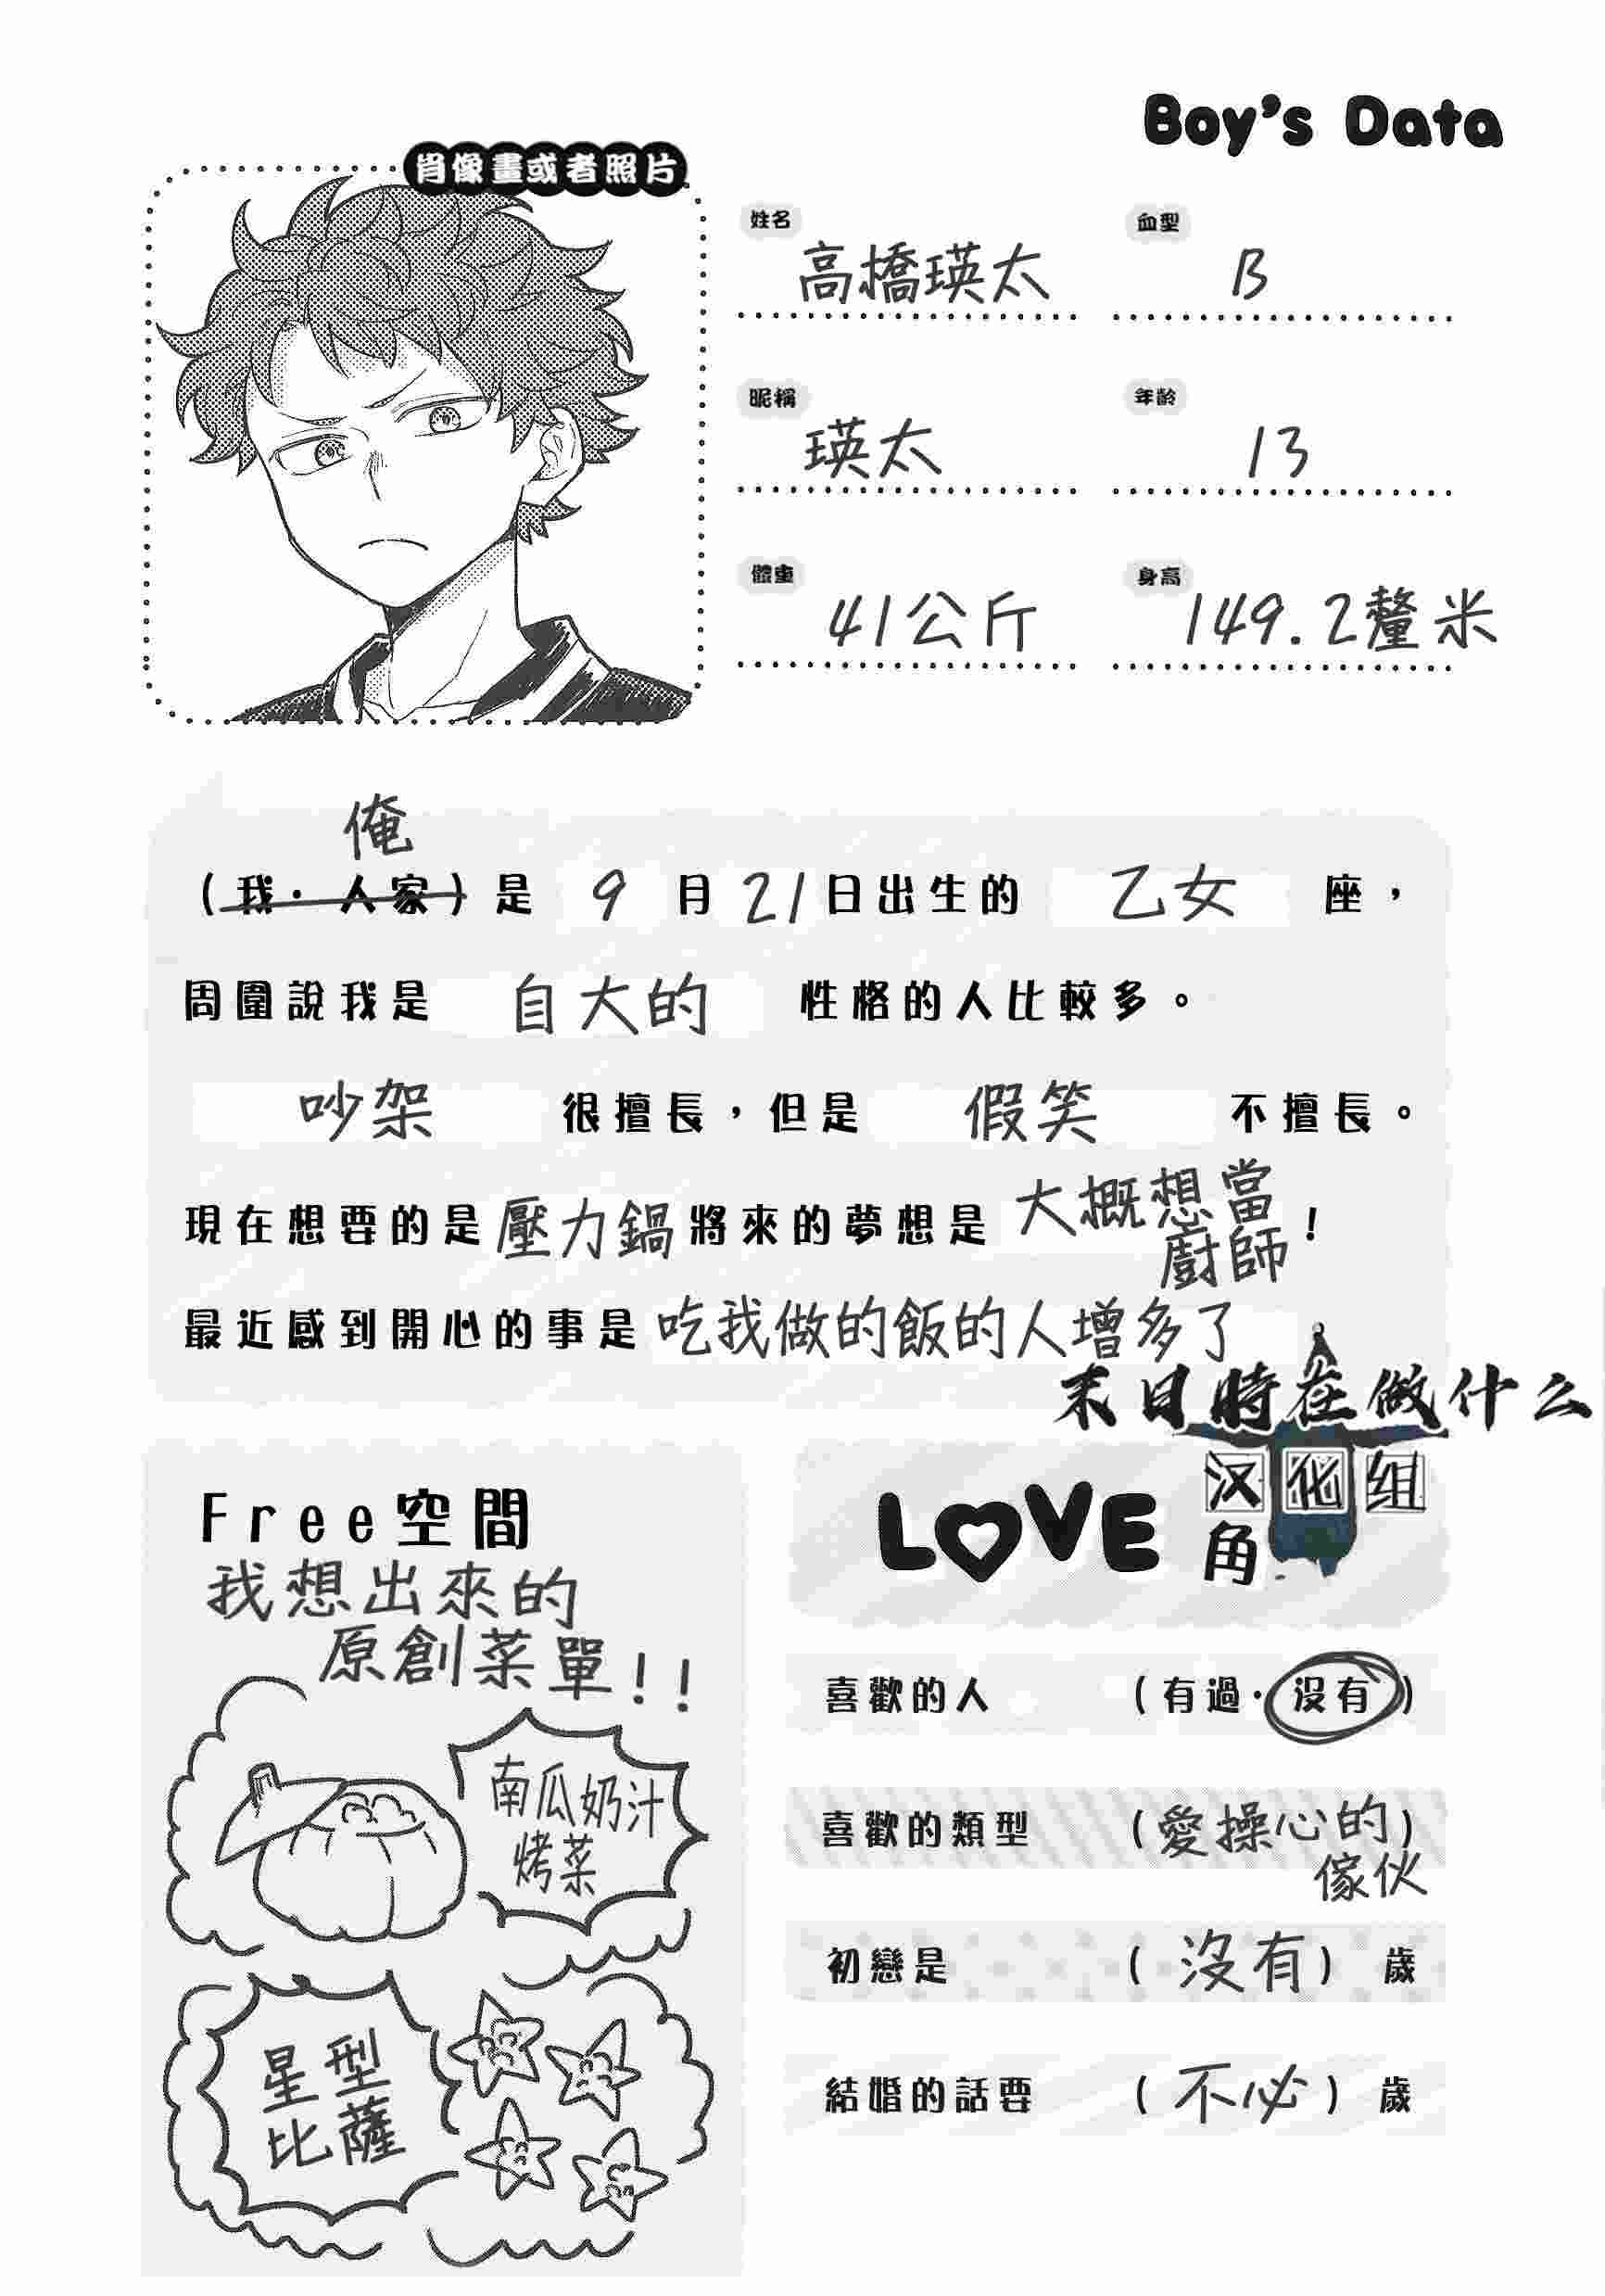 Boy's Data
肖像畫或者照片
姓名
高橋瑛太
血型
B
昵稱
瑛太
年齡
13
體重
41公斤
身高
149.2釐米
俺
(我·人家)是 9 月 21 日出生的 乙女 座，
周圍說我是 自大的 性格的人比較多。
吵架 很擅長，但是 假笑 不擅長。
現在想要的是 壓力鍋 將來的夢想是 大概想當
廚師！
最近感到開心的事是 吃我做的飯的人增多了
末日時在做什么
汉化组
角
Free空間
我想出來的
原創菜單!!
南瓜奶汁
烤菜
星型
比薩
LOVE
喜歡的人 (有過·沒有)
喜歡的類型 (愛操心的)
傢伙
初戀是 (沒有) 歲
結婚的話要 (不必) 歲